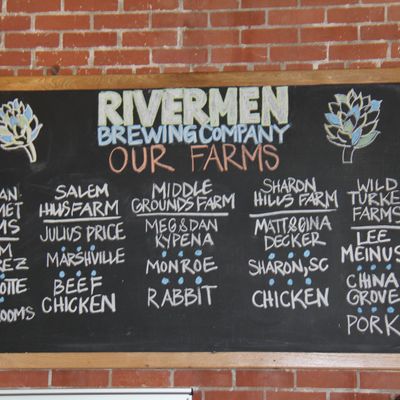 RIVERMEN
BREWING COMPANY
OUR FARMS
SALEM
HILLS FARM
JULIUS PRICE
MARSHVILLE
BEEF
CHICKEN
MIDDLE
GROUNDS FARM
MEG & DAN
KYPENA
MONROE
RABBIT
SHARON
HILLS FARM
MATT & GINA
DECKER
SHARON, SC
CHICKEN
WILD
TURKE
FARMS
LEE
MEINUS
CHINA
GROVE
PORK